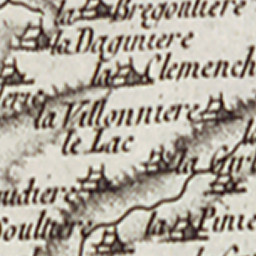 la Bregontiere
la Daginiere
la Clemench
lerie
la Villonniere
le Lac
la Girl
udiere
Soultiere
la Pinie